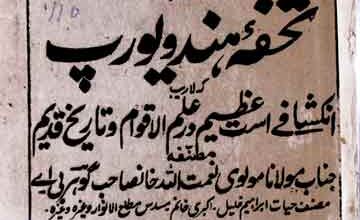 ۱۱۵
تحفۂ ہند و یورپ
کہ لاریب
انکشافے است عظیم در علم الاقوام و تاریخ قدیم
مصنفہ
جناب مولانا مولوی نعمت اللہ خانصاحب گوہر بی اے
مصنف حیات ابراہیم خلیل۔ اکبری خاتم۔ مسدس مطلع الانوار وغیرہ وغیرہ۔